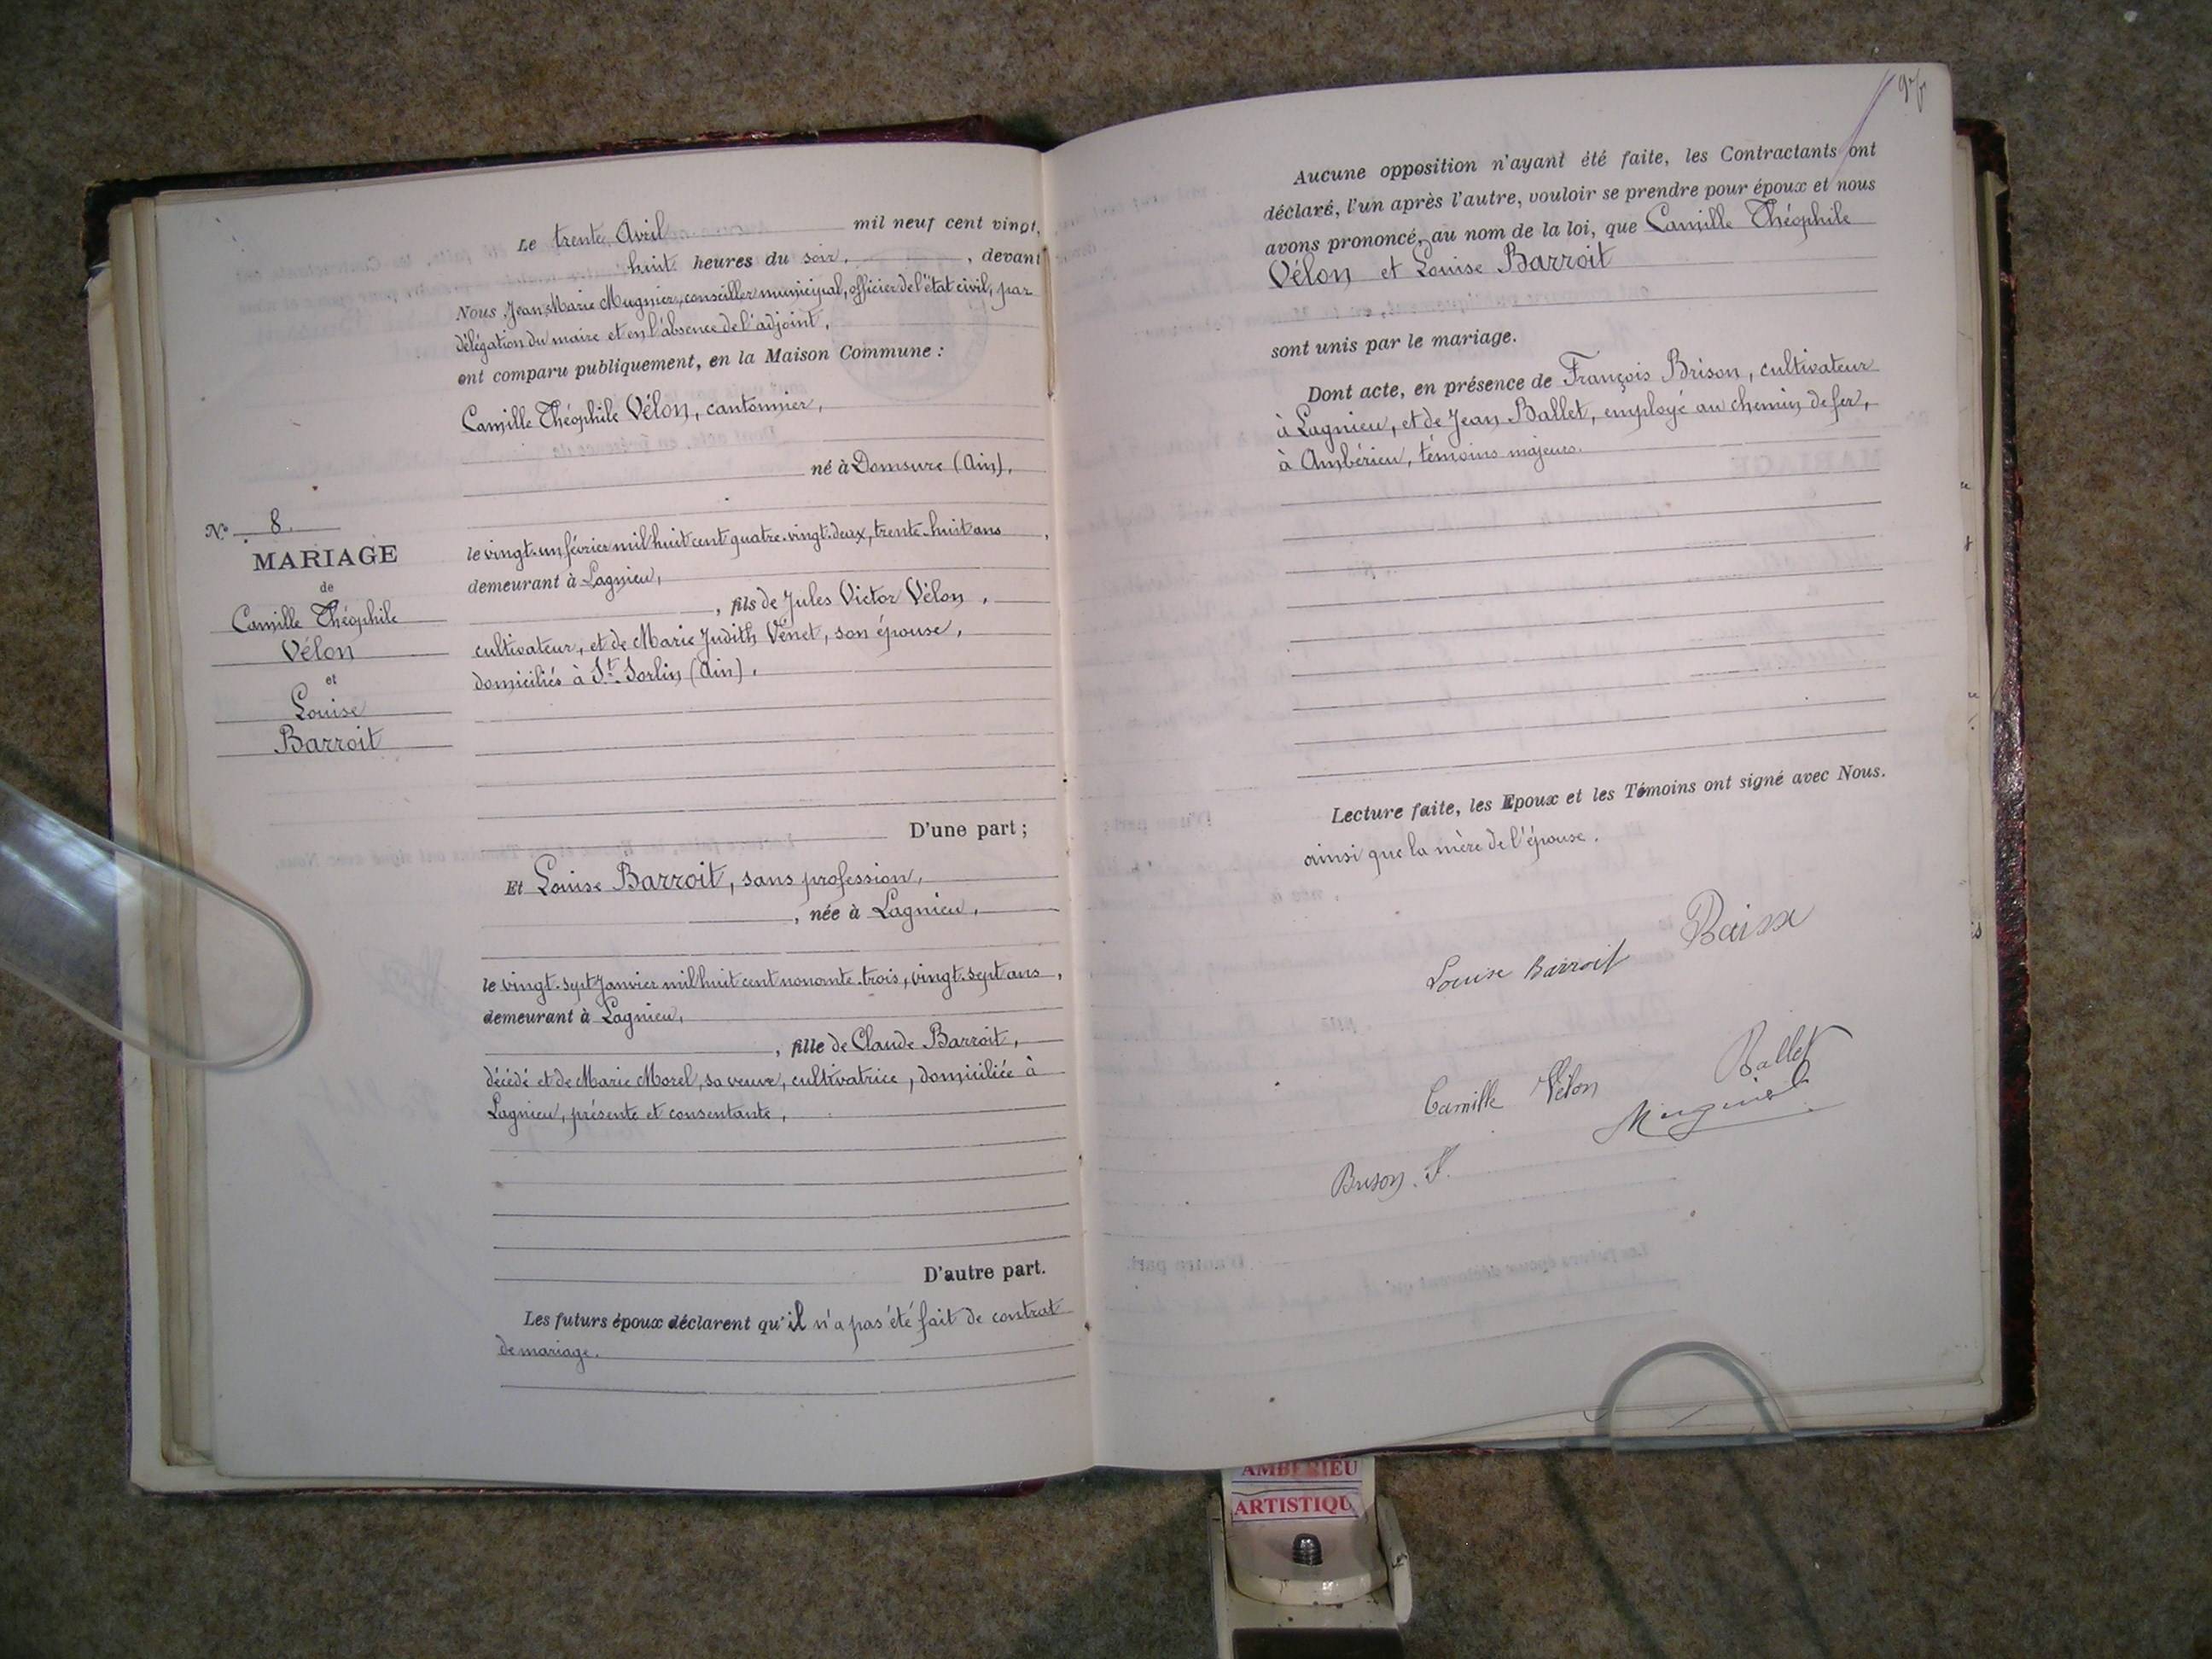 Le trente Avril mil neuf cent vingt,
huit heures du soir, , devant
Nous Jean Marie Mugnier, conseiller municipal, officier de l'état civil, par
délégation du maire et en l'absence de l'adjoint,
ont comparu publiquement, en la Maison Commune :
Camille Théophile Vélon, cantonnier,
né à Domsure (Ain),
N° 8.
MARIAGE
de
Camille Théophile
Vélon
et
Louise
Barroit
le vingt-un février mil huit cent quatre-vingt-deux, trente-huit ans ,
demeurant à Lagnieu,
, fils de Jules Victor Vélon ,
cultivateur, et de Marie Judith Vénet, son épouse,
domiciliés à St Sorlin (Ain),
D'une part ;
Et Louise Barroit, sans profession,
, née à Lagnieu,
le vingt-sept Janvier mil huit cent nonante-trois, vingt-sept ans ,
demeurant à Lagnieu,
, fille de Claude Barroit,
décédé et de Marie Morel, sa veuve, cultivatrice, domiciliée à
Lagnieu, présente et consentante,
D'autre part.
Les futurs époux déclarent qu'il n'a pas été fait de contrat
de mariage.
Aucune opposition n'ayant été faite, les Contractants ont
déclaré, l'un après l'autre, vouloir se prendre pour époux et nous
avons prononcé, au nom de la loi, que Camille Théophile
Vélon et Louise Barroit
sont unis par le mariage.
Dont acte, en présence de François Brison, cultivateur
à Lagnieu, et de Jean Ballet, employé au chemin de fer,
à Ambérieu, témoins majeurs.
Lecture faite, les Epoux et les Témoins ont signé avec Nous.
ainsi que la mère de l'épouse.
Louise Barroit
Camille Vélon
Ballet
Mugnier
Brison. F.
AMBERIEU
ARTISTIQU